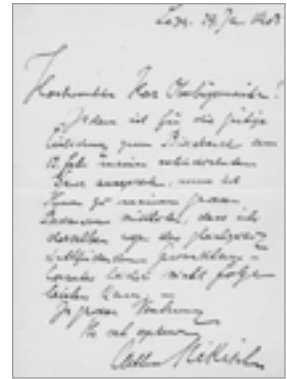 Leipz. 29. Jan. 1903
Hochverehrter Herr Oberbürgermeister!
Indem ich für die gütige
Einladung zum Bierabend am
12. Feb. meinen
Dank ausspreche, muss ich
Ihnen zu meinem grossen
Bedauern mitteilen, dass ich
derselben wegen des gleichzeitig
stattfindenden
Concertes leider nicht folge
leisten kann. –
In grosser Verehrung
Ihr sehr ergebener
Arthur Nikisch